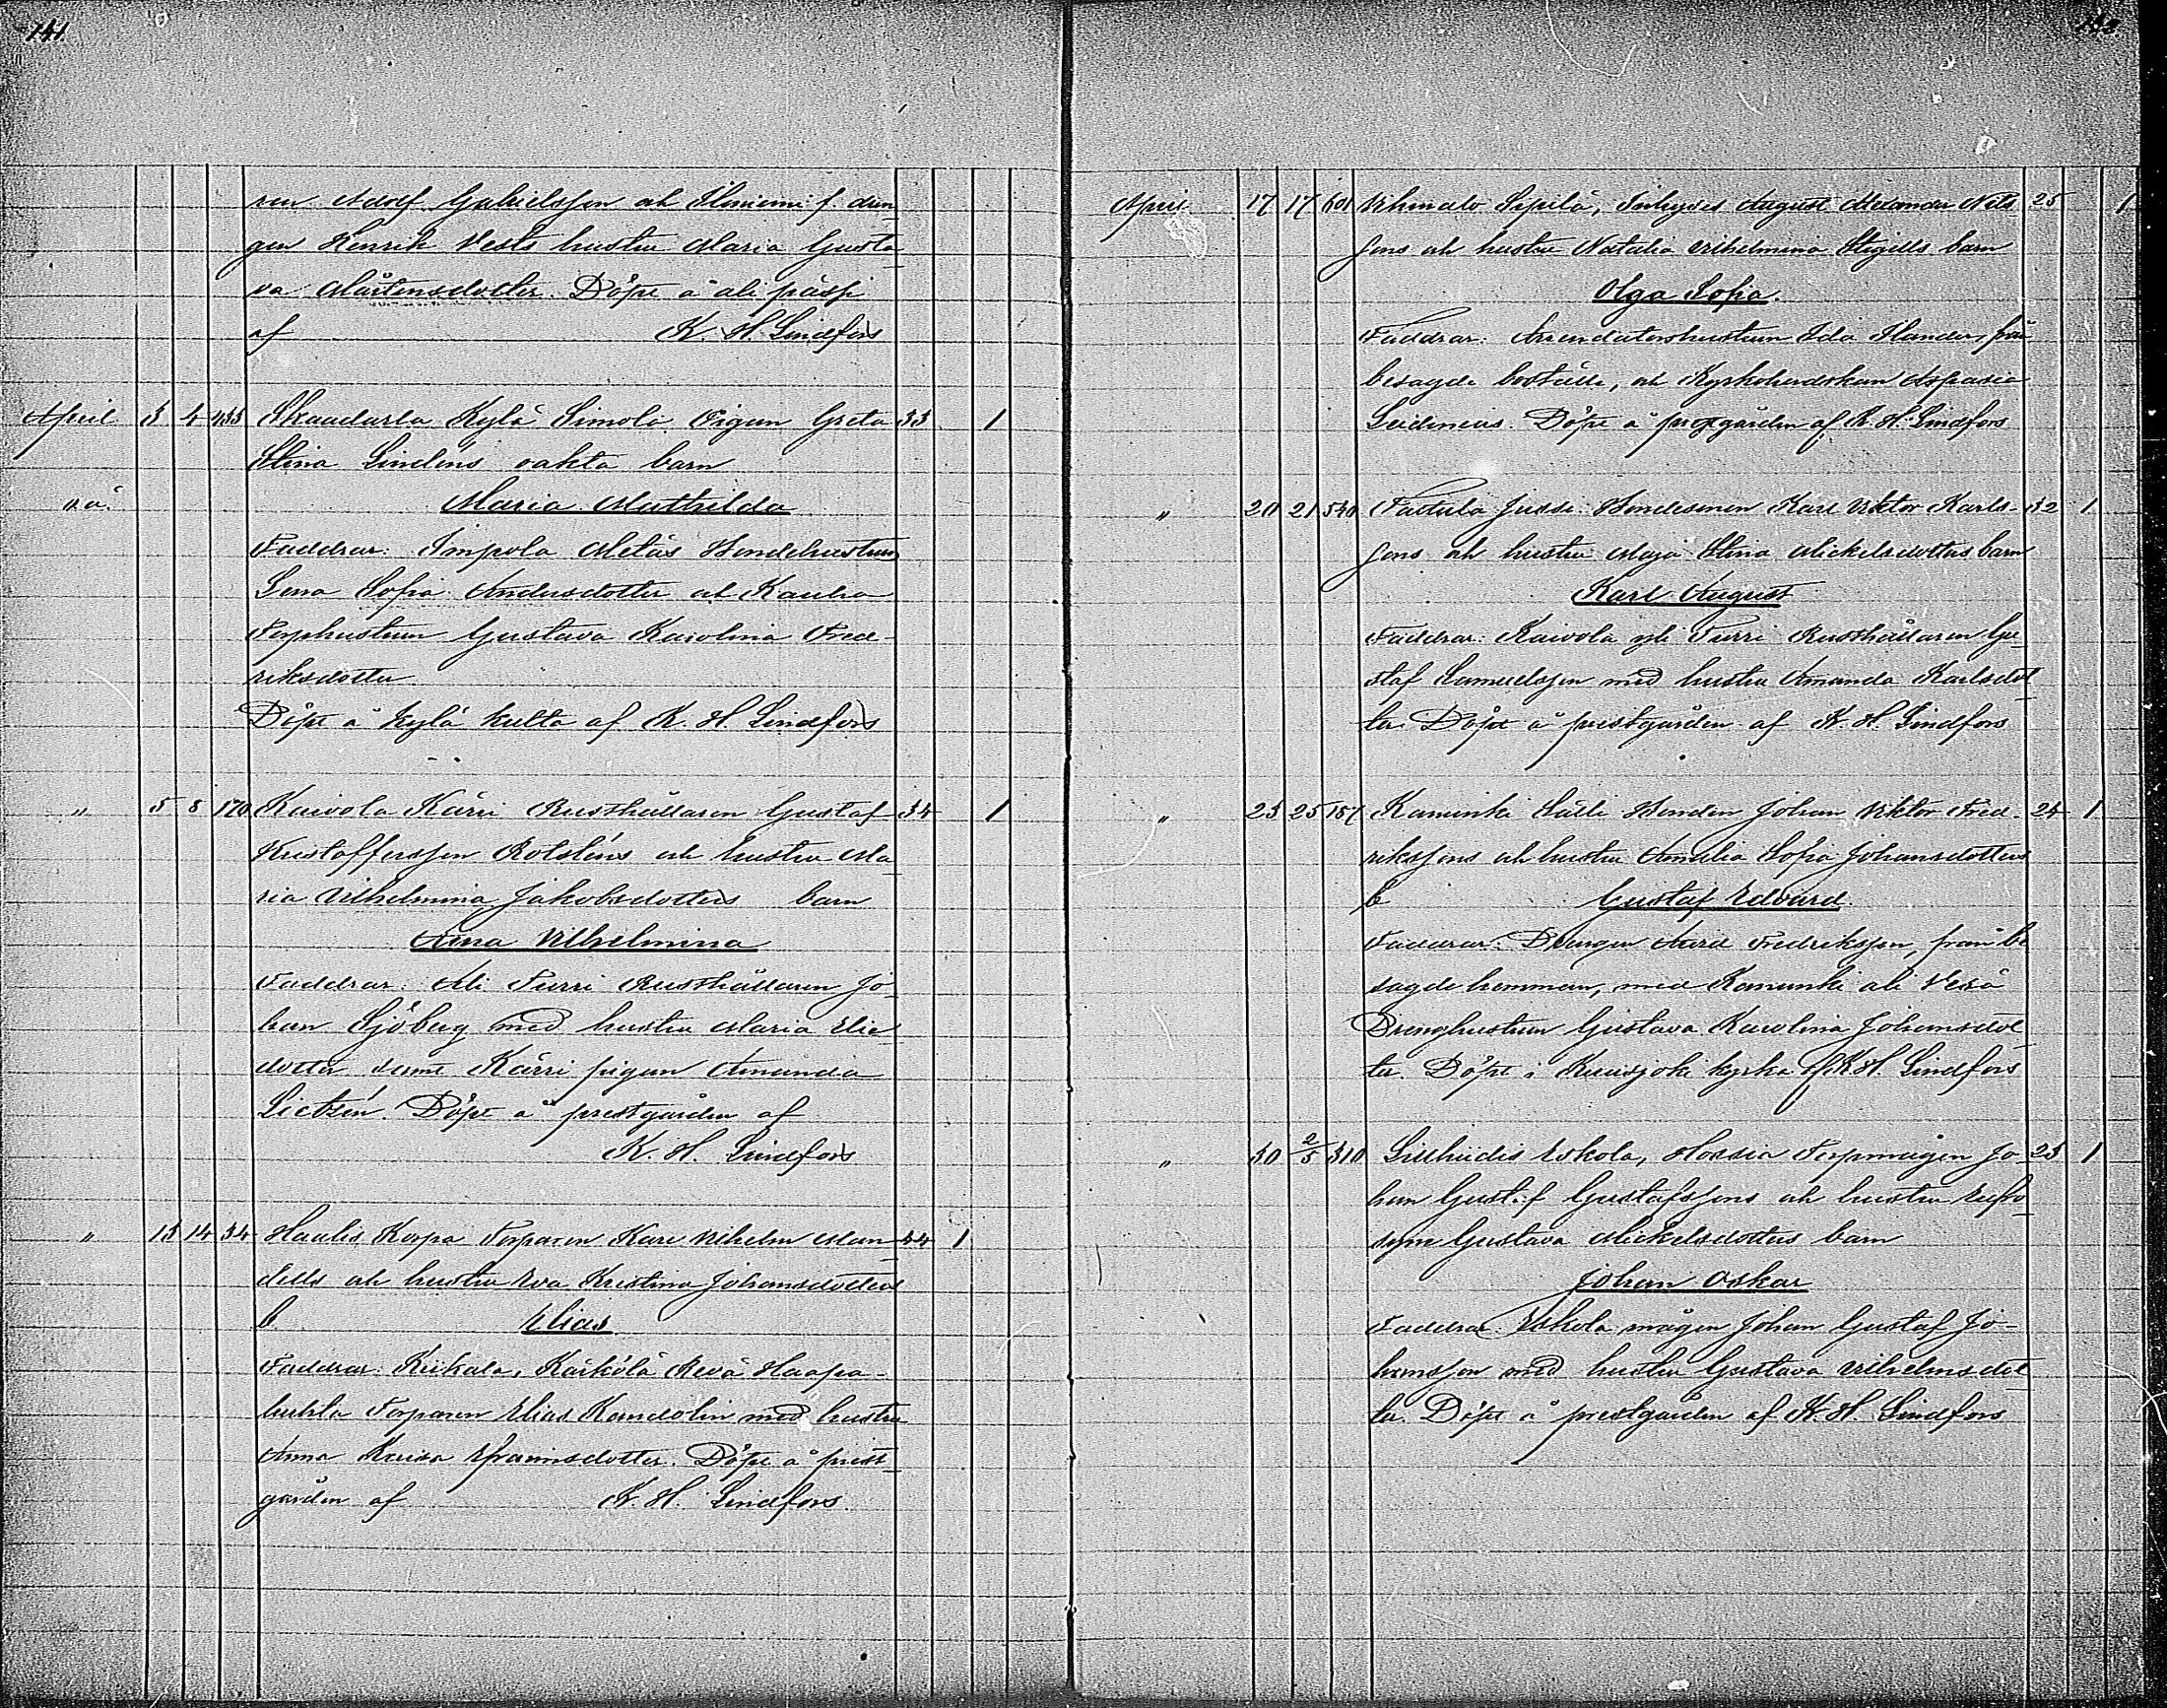 141.
ren Adolf Gabrielsson och Iloniemi f. drän
gen Henrik Vests hustru Maria Gusta
va Mårtensdotter. Döpt å ali pässi
af K. H. Lindfors
April 3 4 433 Skaadarla Kylä Simola Pigan Greta 33 1
Stina Lindéns oäkta barn
o.ä. Maria Mathilda
Faddrar: Impola Metäs Bondehustrun
Lena Sofia Andersdotter och Kauha
Torphustrun Gustava Karolina Fred-
riksdotter
Döpt å Kylä kulta af K. H. Lindfors
" 5 8 170 Kaivola Kärri Rusthållaren Gustaf 34 1
Kristofferssen Rolsténs och hustru Ma
ria Vilhelmina Jakobsdotters barn
Anna Vilhelmina
Faddrar: Ali Turri Rusthållaren Jo
han Sjöberg med hustru Maria Elie
dotter samt Kärri pigan Amanda
Lietzén. Döpt å prestgården af
K. H. Lindfors
" 13 14 34 Haalis Korpa Torparen Karl Vilhelm Man 44 1
dells och hustru Eva Kristina Johansdotters
b. Elias
Faddrar: Krikala, Kärkölä Revä Haapa-
huhta Torparen Elias Randolin med hustru
Anna Efraimsdotter. Döpt å prest
gården af K. H. Lindfors.
April 17 17 601 Vihmalo Sepilä, Inhyses August Alexander Nils 25 1
sons och hustru Natalia Vilhelmina Stigells barn
Olga Sofia.
Faddrar: Arrendatorshustrun Ida Ilander, från
besagde boställe, och Kyrkoherdskan Aspasia
Leidenius. Döpt å prestgården af K. H. Lindfors
" 20 21 540 Tuotula Jussi Bondesonen Karl Viktor Karls- 32 1
sons och hustru Maja Stina Mickelsdotters barn
Karl August
Faddrar: Kaivola yli Turri Rusthållaren Gu
staf Samuelssen med hustru Amanda Karlsdot
ter. Döpt å prestgården af K. H. Lindfors
" 23 25 157 Kanunki Sälli Bonden Johan Viktor Fred- 24 1
rikssons och hustru Amalia Sofia Johansdotters
b Gustaf Edvard.
Faddrar: Drängen Aurd Fredriksson, från be
sagde hemman, med Kanunki ali Vesä
Dränghustrun Gustava Karolina Johansdot
ter. Döpt i Kuusjoki kyrka af K. H. Lindfors
" 30 2/5 310 Eskola, Hossia Torpmågen Jo 23 1
han Gustaf Gustafssons och hustru Eufro
syne Gustava Mickelsdotters barn
Johan Oskar
Faddrar: Eskola mågen Johan Gustaf Jo-
hansson med hustru Gustava Vilhelmsdot
ter. Döpt å prestgården af K. H. Lindfors